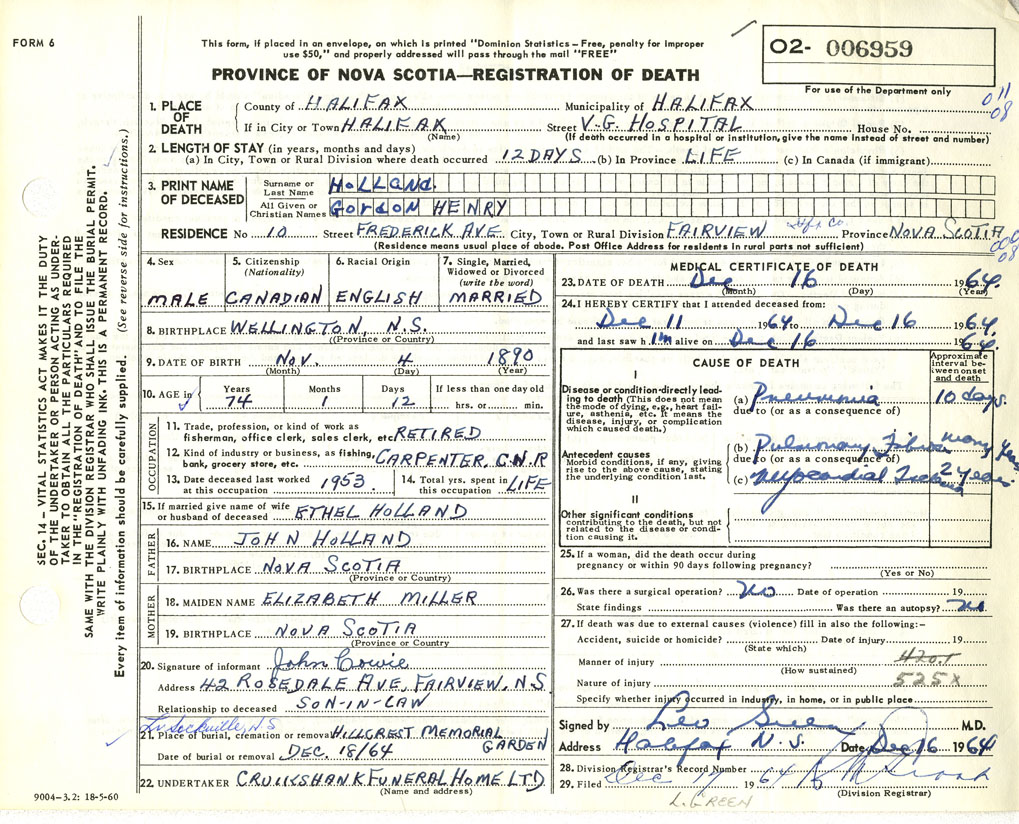 FORM 6
This form, if placed in an envelope, on which is printed "Dominion Statistics – Free, penalty for improper
use $50," and properly addressed will pass through the mail "FREE"
O2- 006959
For use of the Department only
PROVINCE OF NOVA SCOTIA—REGISTRATION OF DEATH
011
08
1. PLACE OF DEATH
County of HALIFAX Municipality of HALIFAX
If in City or Town HALIFAX Street V.G. HOSPITAL House No.
(Name) (If death occurred in a hospital or institution, give the name instead of street and number)
2. LENGTH OF STAY (in years, months and days)
(a) In City, Town or Rural Division where death occurred 12 DAYS (b) In Province LIFE (c) In Canada (if immigrant)
3. PRINT NAME OF DECEASED
Surname or Last Name HOLLAND.
All Given or Christian Names GORDON HENRY
RESIDENCE No 10 Street FREDERICK AVE. City, Town or Rural Division FAIRVIEW Hfx Co Province NOVA SCOTIA
(Residence means usual place of abode. Post Office Address for residents in rural parts not sufficient)
000
08
4. Sex
MALE
5. Citizenship
(Nationality)
CANADIAN
6. Racial Origin
ENGLISH
7. Single, Married,
Widowed or Divorced
(write the word)
MARRIED
8. BIRTHPLACE WELLINGTON, N.S.
(Province or Country)
9. DATE OF BIRTH NOV. 4 1890
(Month) (Day) (Year)
10. AGE in Years 74 Months 1 Days 12 If less than one day old
hrs. or min.
OCCUPATION
11. Trade, profession, or kind of work as
fisherman, office clerk, sales clerk, etc. RETIRED
12. Kind of industry or business, as fishing,
bank, grocery store, etc. CARPENTER, C.N.R
13. Date deceased last worked
at this occupation 1953
14. Total yrs. spent in
this occupation LIFE
15. If married give name of wife
or husband of deceased ETHEL HOLLAND
FATHER
16. NAME JOHN HOLLAND
17. BIRTHPLACE NOVA SCOTIA
(Province or Country)
MOTHER
18. MAIDEN NAME ELIZABETH MILLER
19. BIRTHPLACE NOVA SCOTIA
(Province or Country
20. Signature of informant John Cowie
Address 42 ROSEDALE AVE, FAIRVIEW, N.S.
Relationship to deceased SON-IN-LAW
Sackville, N.S
21. Place of burial, cremation or removal HILLCREST MEMORIAL
GARDEN
Date of burial or removal DEC. 18/64
22. UNDERTAKER CRUIKSHANK FUNERAL HOME LTD
(Name and address)
MEDICAL CERTIFICATE OF DEATH
23. DATE OF DEATH Dec 16 1964
(Month) (Day) (Year)
24. I HEREBY CERTIFY that I attended deceased from:
Dec 11 1964 to Dec 16 1964
and last saw h im alive on Dec 16 1964
CAUSE OF DEATH
Approximate interval between onset and death
I
Disease or condition directly lead-
ing to death (This does not mean
the mode of dying, e.g., heart fail-
ure, asthenia, etc. It means the
disease, injury, or complication
which caused death.)
(a) Pneumonia 10 days.
due to (or as a consequence of)
Antecedent causes
Morbid conditions, if any, giving
rise to the above cause, stating
the underlying condition last.
(b) Pulmonary many years
due to (or as a consequence of)
(c) Myocardial 2 years
II
Other significant conditions
contributing to the death, but not
related to the disease or condi-
tion causing it.
25. If a woman, did the death occur during
pregnancy or within 90 days following pregnancy?
(Yes or No)
26. Was there a surgical operation? no Date of operation 19
State findings Was there an autopsy? no
27. If death was due to external causes (violence) fill in also the following:–
Accident, suicide or homicide? Date of injury 19
(State which)
Manner of injury 420.1
(How sustained)
Nature of injury 525X
Specify whether injury occurred in industry, in home, or in public place
Signed by Leo Green M.D.
Address Halifax N.S. Date Dec 16 1964
28. Division Registrar's Record Number
29. Filed Dec 17 1964
(Division Registrar)
L. GREEN
9004–3.2: 18-5-60
SEC. 14 – VITAL STATISTICS ACT MAKES IT THE DUTY
OF THE UNDERTAKER OR PERSON ACTING AS UNDER-
TAKER TO OBTAIN ALL THE PARTICULARS REQUIRED
IN THE "REGISTRATION OF DEATH" AND TO FILE THE
SAME WITH THE DIVISION REGISTRAR WHO SHALL ISSUE THE BURIAL PERMIT.
WRITE PLAINLY WITH UNFADING INK. THIS IS A PERMANENT RECORD.
Every item of information should be carefully supplied. (See reverse side for instructions.)